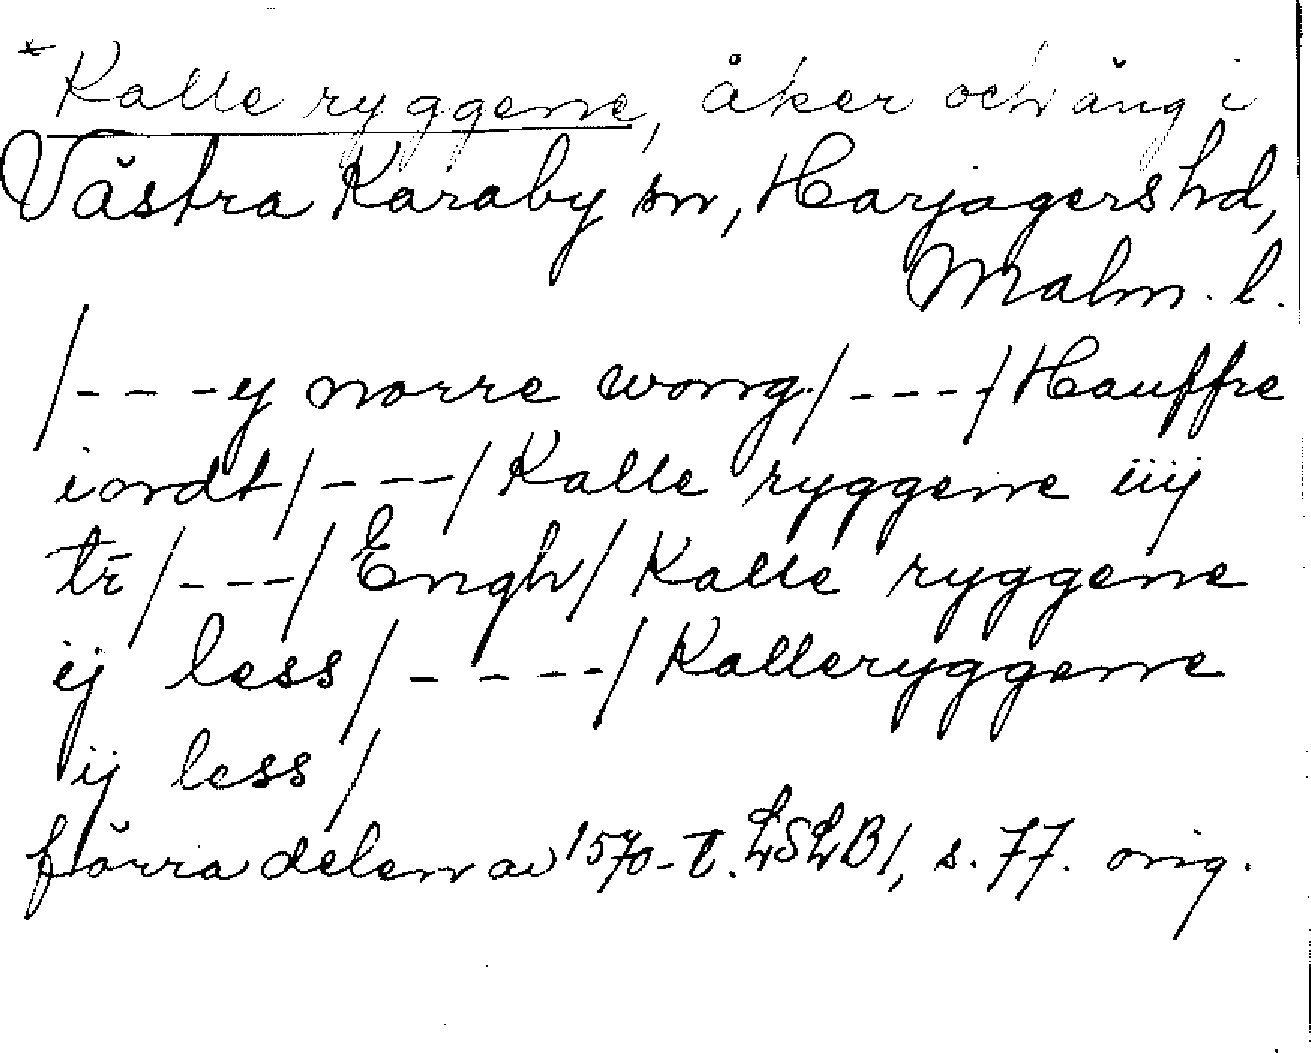 *Kalle ryggene, åker och äng i
Västra Karaby sn, Harjagers hd,
Malm. l.
/- - - y norre wong/ - - - / Hauffre
iordt/ - - - / Kalle ryggene iiij
tr̄ / - - - / Engh / Kalle ryggene
ij less / - - - - / Kalleryggene
ij less /
förra delen av 1570-t. LSLB1, s. 77. orig.